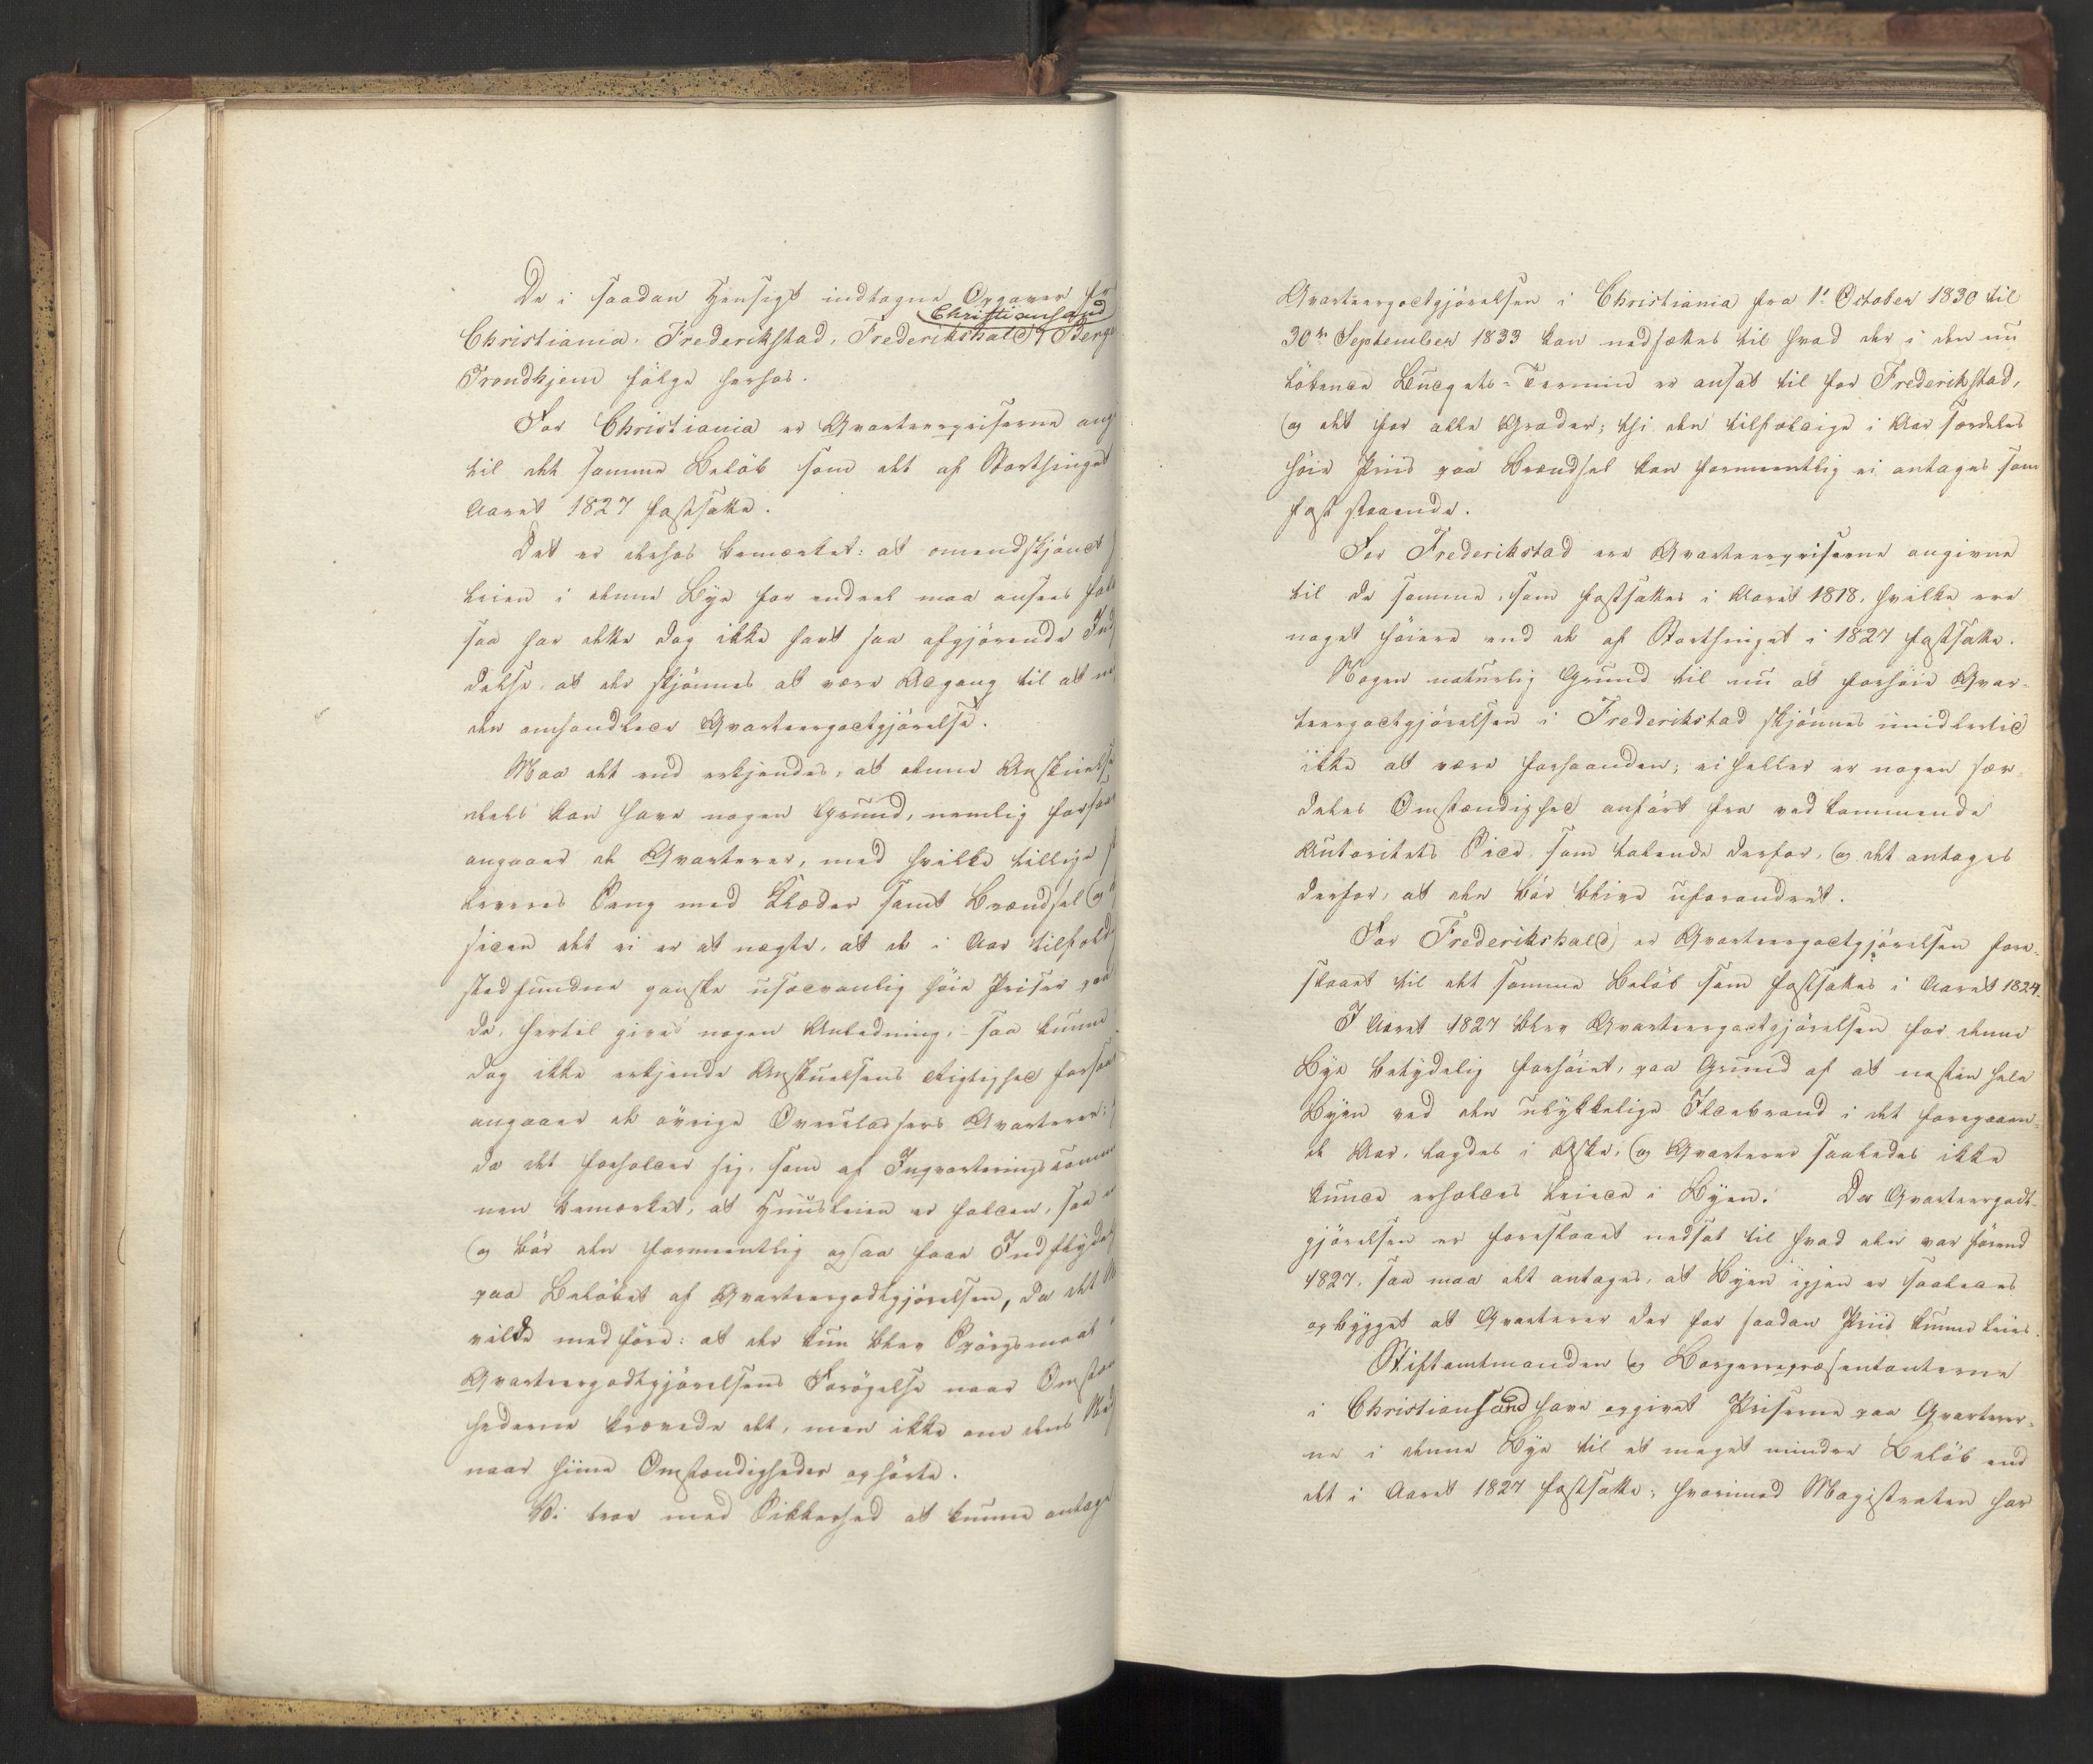 De i saadan Hensigt indtagne Opgaver fr
Christiansand
Christiania, Frederikstad, Frederikshald, Berge
Trondhjem følge herhos.
For Christiania er Qvarteerpriserne ang
til det samme Beløb som det af Storthinget
Aaret 1827 fastsatte.
Det er derhos bemærket: at omendskjøndt
Leien i denne Bye for endeel maa ansees fal
saa har dette dog ikke havt saa afgjørende Ind
delse, at der skjønnes at være Adgang til at ne
den omhandlede Qvarteergodtgjørelse.
Maa det end erkjendes, at denne Anskuelse
deels kan have nogen Grund, nemlig forsaa
angaaer de Qvarterer, med hvilke tillige
leveres Seng med Klæder samt Brændsel og
siden det ei er at nægte, at de i Aar tilfæld
stedfundne ganske usædvanlig høie Priser paa
de, hertil give nogen Anledning, saa kunne
dog ikke erkjende Anskuelsens Rigtighed forsaa
angaaer de øvrige Overeladsers Qvarterer;
da det forholder sig, som af Inqvarteringscomm
nen bemærket, at Huusleien er falden, saa
og bør den formeentlig ogsaa faae Indflydel
paa Beløbet af Qvarteergodtgjørelsen, da det
vilde medføre: at der kun blev Spørgsmaal
Qvarteergodtgjørelsens Forøgelse naar Omstæn
hederne krævede det, men ikke om dens Ned
naar hiine Omstændigheder ophørte.
Vi troe med Sikkerhed at kunne antage
Qvarteergodtgjørelsen i Christiania fra 1' October 1830 til
30te September 1833 kan nedsættes til hvad der i den nu
løbende Budgets-Termin er ansat til for Frederikstad,
og det for alle Grader; thi den tilfældige i Aar særdeles
høie Priis paa Brændsel kan formeentlig ei antages som
fast staaende.
For Frederikstad ere Qvarteerpriserne angivne
til de samme, som fastsattes i Aaret 1818, hvilke ere
noget høiere end de af Storthinget i 1827 fastsatte.
Nogen naturlig Grund til nu at forhøie Qvar-
teergodtgjørelsen i Frederikstad skjønnes imidlertid
ikke at være forhaanden; ei heller er nogen sær-
deles Omstændighed anført fra vedkommende
Autoritets Side, som talende derfor, og det antages
derfor, at den bør blive uforandret.
For Frederikshald er Qvarteergodtgjørelsen fore-
slaaet til det samme Beløb som fastsattes i Aaret 1824.
I Aaret 1827 blev Qvarteergodtgjørelsen for denne
Bye betydelig forhøiet, paa Grund af at næsten hele
Byen ved den ulykkelige Ildebrand i det foregaaen-
de Aar, lagdes i Aske, og Qvarterer saaledes ikke
kunde erholdes leiede i Byen. Da Qvarteergodt-
gjørelsen er foreslaaet nedsat til hvad den var førend
1827, saa maa det antages, at Byen igjen er saaledes
opbygget at Qvarterer der for saadan Priis kunne leies.
Stiftamtmanden og Borgerrepræsentanterne
i Christiansand have opgivet Priserne paa Qvarterer-
ne i denne Bye til et meget mindre Beløb end
det i Aaret 1827 fastsatte; hvorimod Magistraten har